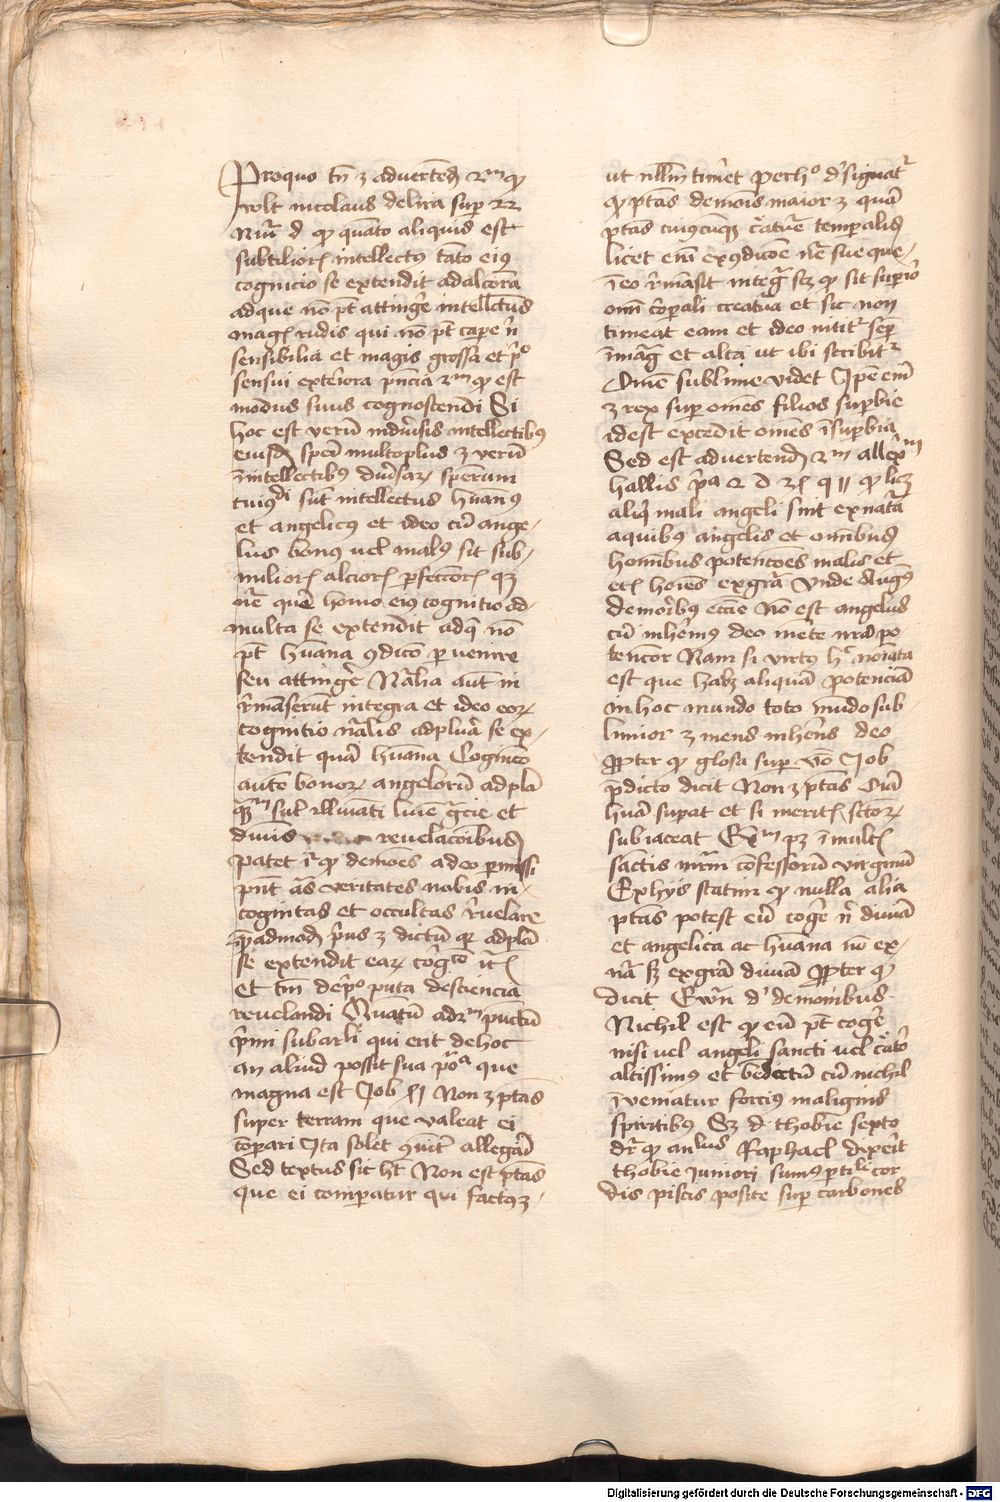 Pro quo tn̄ ꝫ advertend̄ 2m ꝙ
volt nicolaus de lira suꝑ 22
Nūꝫ d ꝙ quāto aliquid est
subtiliorꝭ intellectꝰ tāto eiꝰ
cognicio se extendit ad alciora
ad que nō pt̄ attinge͛ intellctus
magꝭ rudis qui nō pt̄ cape͛ n̄
sensibilia et magis grossa et pͦ
sensui exteriora
modus suus cognoscendi Si
hoc est verū in diuͦsis intellectibꝰ
eiusdꝫ spēi multoplus ꝫ verū
ī intellectibꝰ diuͦsaꝝ spērum
cuiꝰdi sūt intellectus hūanꝰ
et angelicꝰ et ideo cū ange-
lus bonꝰ uel malꝰ sit sub-
tiliorꝭ alciorꝭ ꝑfectōrꝭ qꝫ
nē quā homo eiꝰ cognitio ad
multa se extendit ad q̄ nō
pt̄ hūana ꝯdicō ꝑuenire
seu attinge͛ Nālia aūt in
r̄manserūt integra et ideo eoꝝ
cognitio nālis ad plūa se ex-
tendit quā hūana Cognicō
autē bonoꝝ angeloꝝ ad plā
qm̄ sūt illūiati lūie gr̄cie et
diuīs reuelacōibusꝫ
patet iͣ ꝙ demōes a deo ꝑmissi
pn̄t aͣs veritates nobis in-
cognitas et occultas r̄uelare
quēadmodꝫ pͥus ꝫ dictū ꝙ ad plā
se extendit eaꝝ
Et tm̄ de pͦ puta de sciencia
reuelandi Quātū ad 2m punctū
pͥmi subarli qui erit de hoc
an aliud possit sua pͦꝰa que
magna est Job xlj Non ꝫ ptās
super terram que valeat ei
cōpari Ita solet ꝯuit͛ allegāri
Sed textus sic ht̄ Non est ptās
que ei comparatur qui factꝰ ꝫ
ut nllm̄ timēt per hͦ designatͬ
ꝙ ptās demōis maior ꝫ quā
ptās cuiꝰcūqꝫ cͣtuē temporalis
licet em̄ ex ꝯdicōe nē sue que
ī eo r̄māsit integͣ scꝫ ꝙ sit suꝑior
omī corporali creatūa et sic non
timeat eam et ideo nititͬ sēꝑ
ī magͣ et alta ut ibi scribitͬ
Omē sublime videt Ipse em̄
ꝫ rex suꝑ omēs filios suꝑbie
id est excedit omēs ī suꝑbia
Sed est advertendꝫ 2m allexm
hallis pͣa 2 d 2ꝭ q 11 ꝙ licꝫ
aliqͥ mali angeli sint ex natā
a quibꝰ angelis et omībusꝫ
homībus potencōes malis et
etꝭ hoīes ex grā Unde Augꝰ
de moribꝰ eccīe Nō est angelus
cū inhērꝰ deo mēte nrā po
tencior Nam si virtꝰ hͥ noīata
est que habꝫ aliquā potenciā
in hoc mundo toto mūdo sub-
limior ꝫ mens inhēns deo
Ꝓpter ꝙ glosa super vō Job
p̄dicto dicit Non ꝫ ptās Uiā
huā supat et si meritꝭ sctōꝝ
subiaceat Exm pꝫ ī multꝭ
sanctis mrm̄ cōfessorū virginū
Ex hijs statim ꝙ nulla alia
ptās potest eū coge͛ n̄ diuīa
et angelica ac hūana nō ex
nā sꝫ ex grā diuīa Ꝓpter ꝙ
dicit Ewn̄ dͤ demonibus
Nichil est ꝙ eū pt̄ coge͛
nisi uel angeli sancti uel cͣator
altissimꝰ et bēdictū cū nichil
īveniatur forciꝰ malignis
spiritibꝰ Sꝫ d. thobie sexto
dr̄ ꝙ anlus Raphael dixerit
thobie iuniori sumꝰ ꝑtile cor
dis piscis posite suꝑ carbones